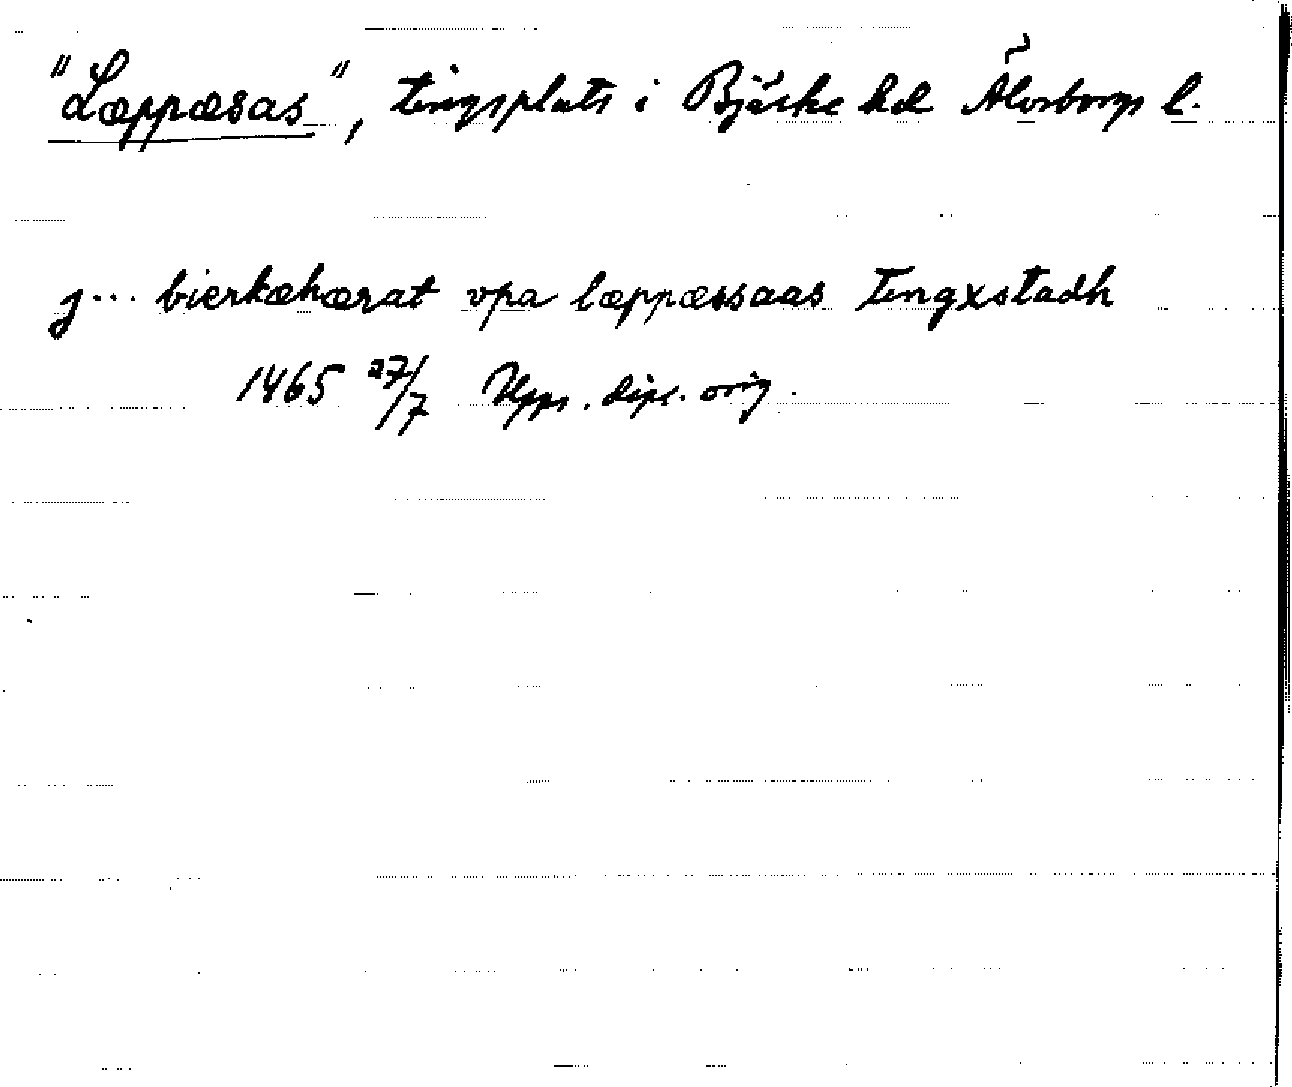 "Læppæsas", tingsplats i Bjärke hd Älvsborgs l.
j... bierkæhærat vpa læppæssaas Tingxstadh
1465 27/7 Upps. dipl. orig.